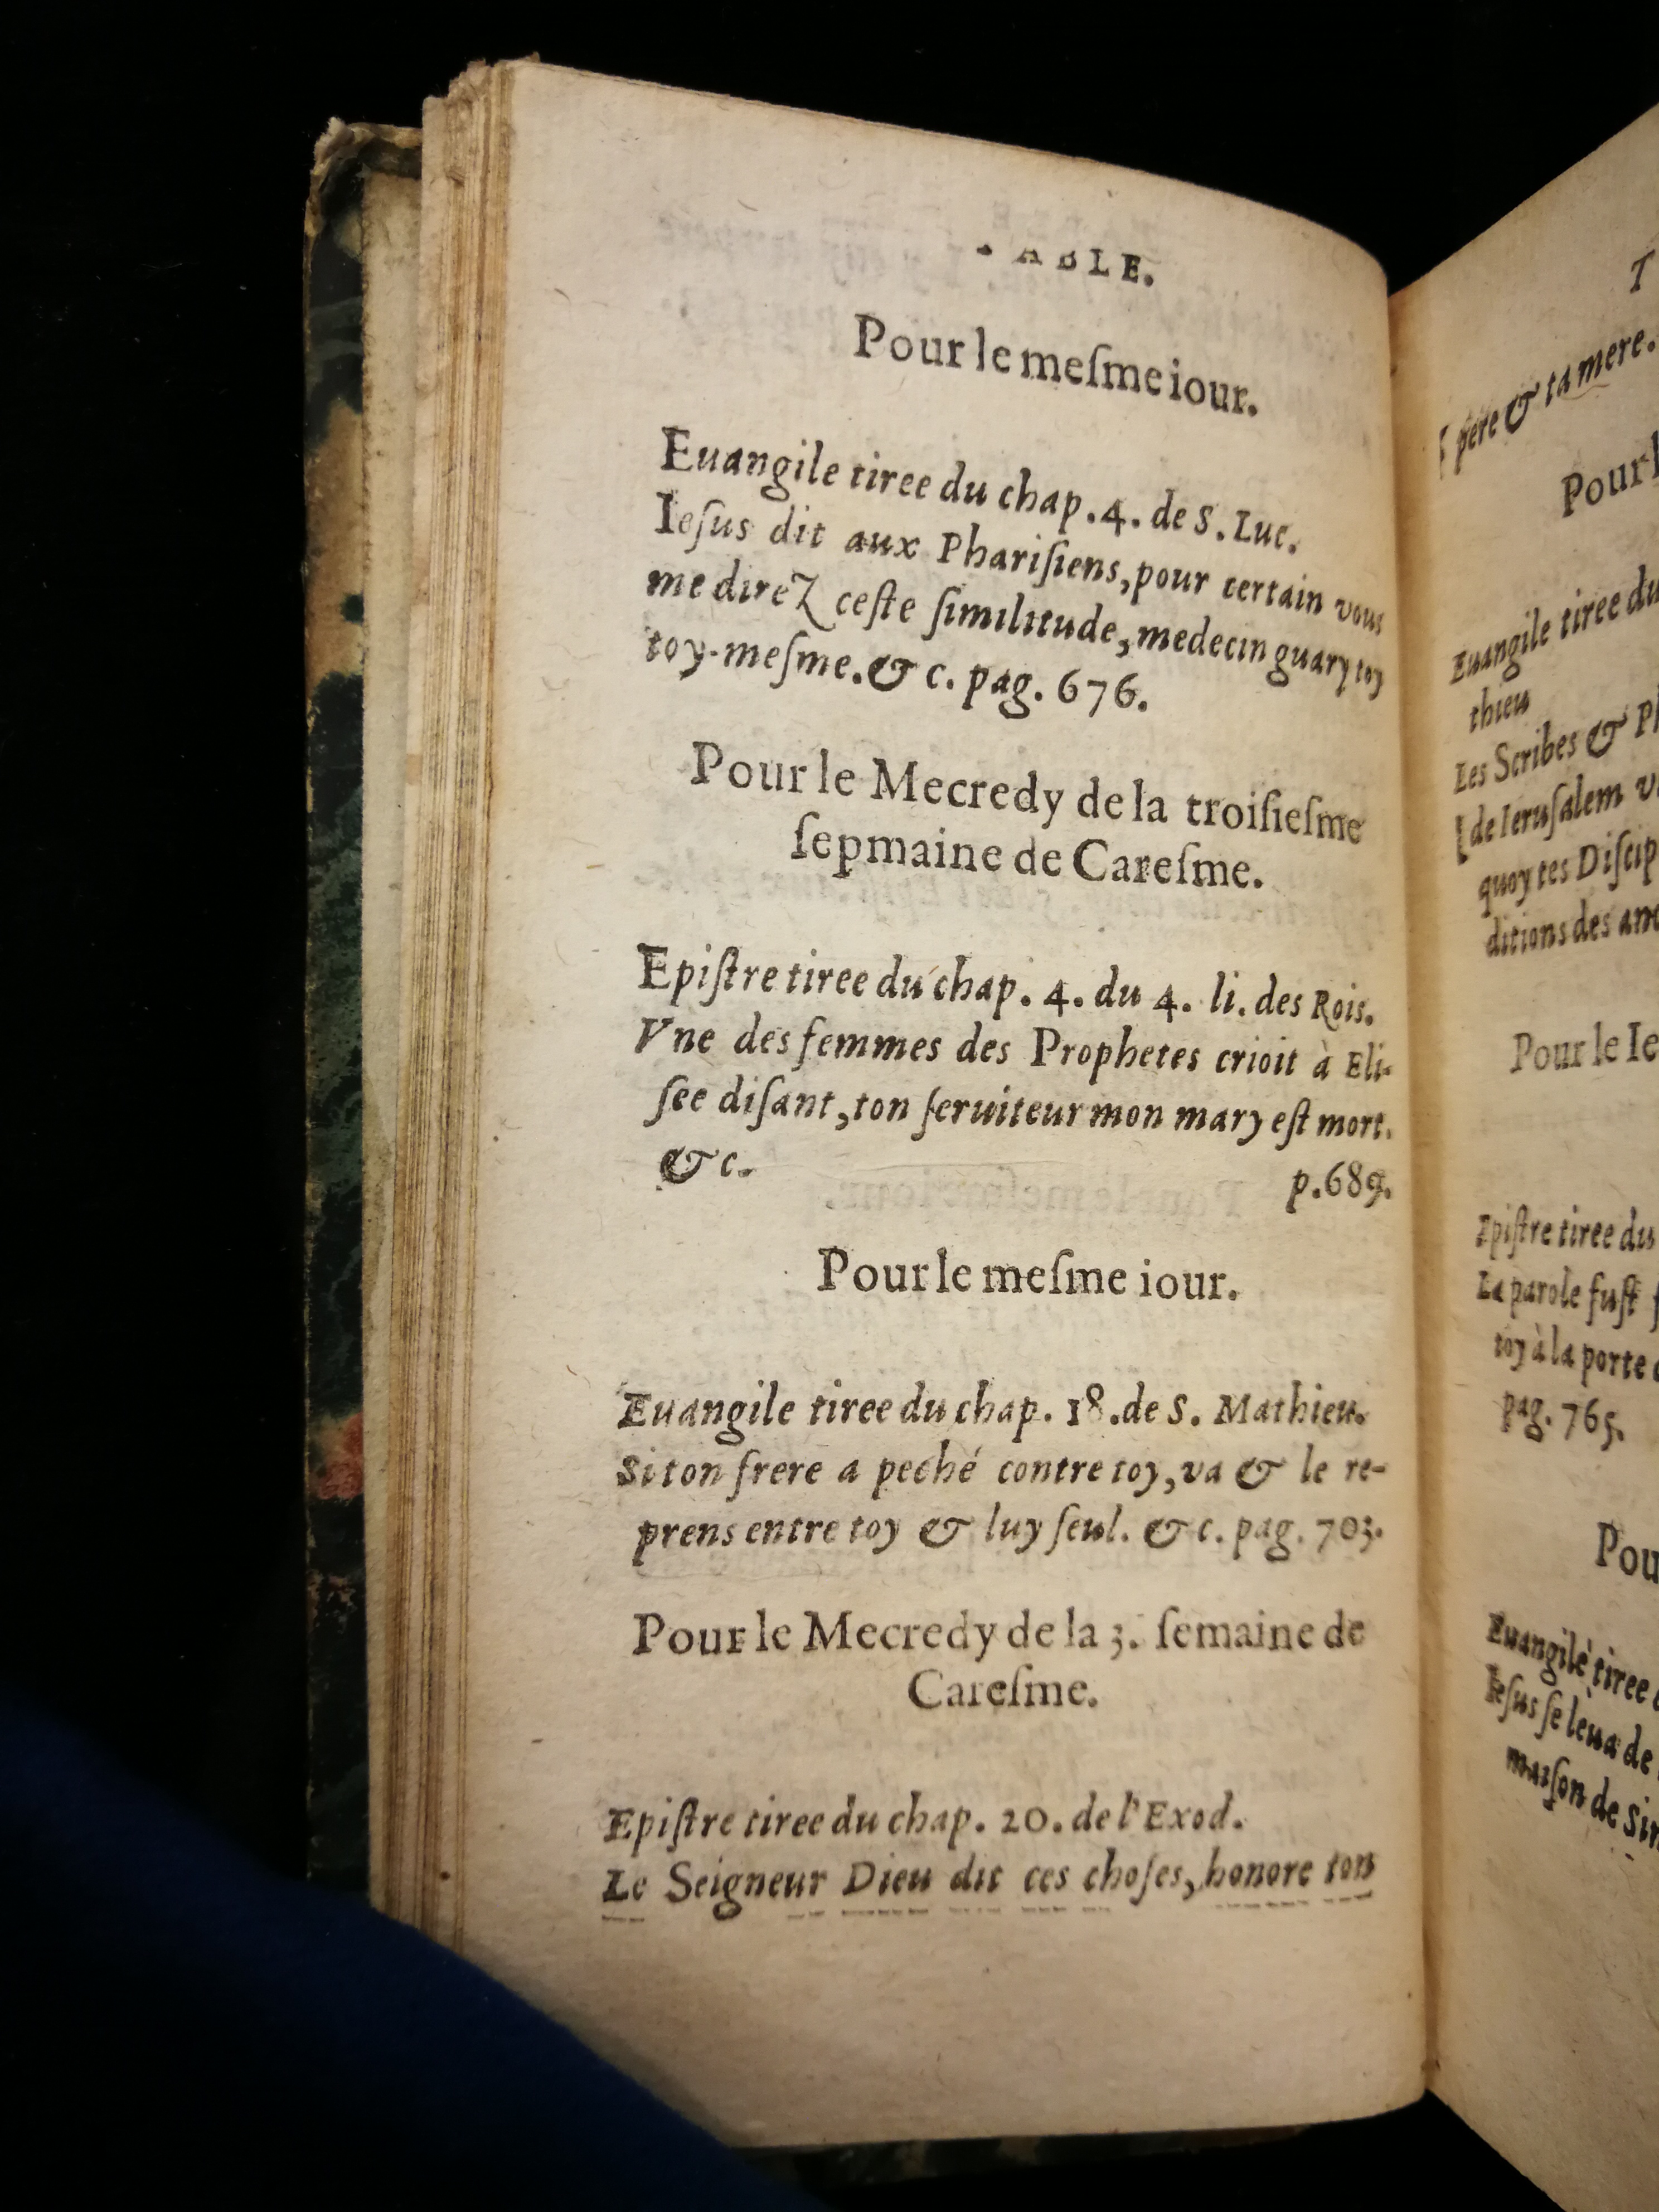 TABLE.
Pour le meſme iour.
Euangile tiree du chap. 4. de S. Luc.
Ieſus dit aux Phariſiens, pour certain vous
me direz ceſte ſimilitude, medecin guary toy
toy-meſme. & c. pag. 676.
Pour le Mecredy de la troiſieſme
ſepmaine de Careſme.
Epiſtre tiree du chap. 4. du 4. li. des Rois.
Vne des femmes des Prophetes crioit à Eli-
ſee diſant, ton ſeruiteur mon mary eſt mort.
& c. p. 689.
Pour le meſme iour.
Euangile tiree du chap. 18. de S. Mathieu.
Si ton frere a peché contre toy, va & le re-
prens entre toy & luy ſeul. & c. pag. 703.
Pour le Mecredy de la 3. ſemaine de
Careſme.
Epiſtre tiree du chap. 20. de l'Exod.
Le Seigneur Dieu dit ces choſes, honore ton
T
pere & ta mere.
Pour l
Euangile tiree du
thieu
Les Scribes & Ph
de Ieruſalem v
quoy tes Diſcip
ditions des anc
Pour le Ie
Epiſtre tiree du
La parole fuſt f
toy à la porte
pag. 765.
Pou
Euangile tiree
Ieſus ſe leua de
maiſon de Sim